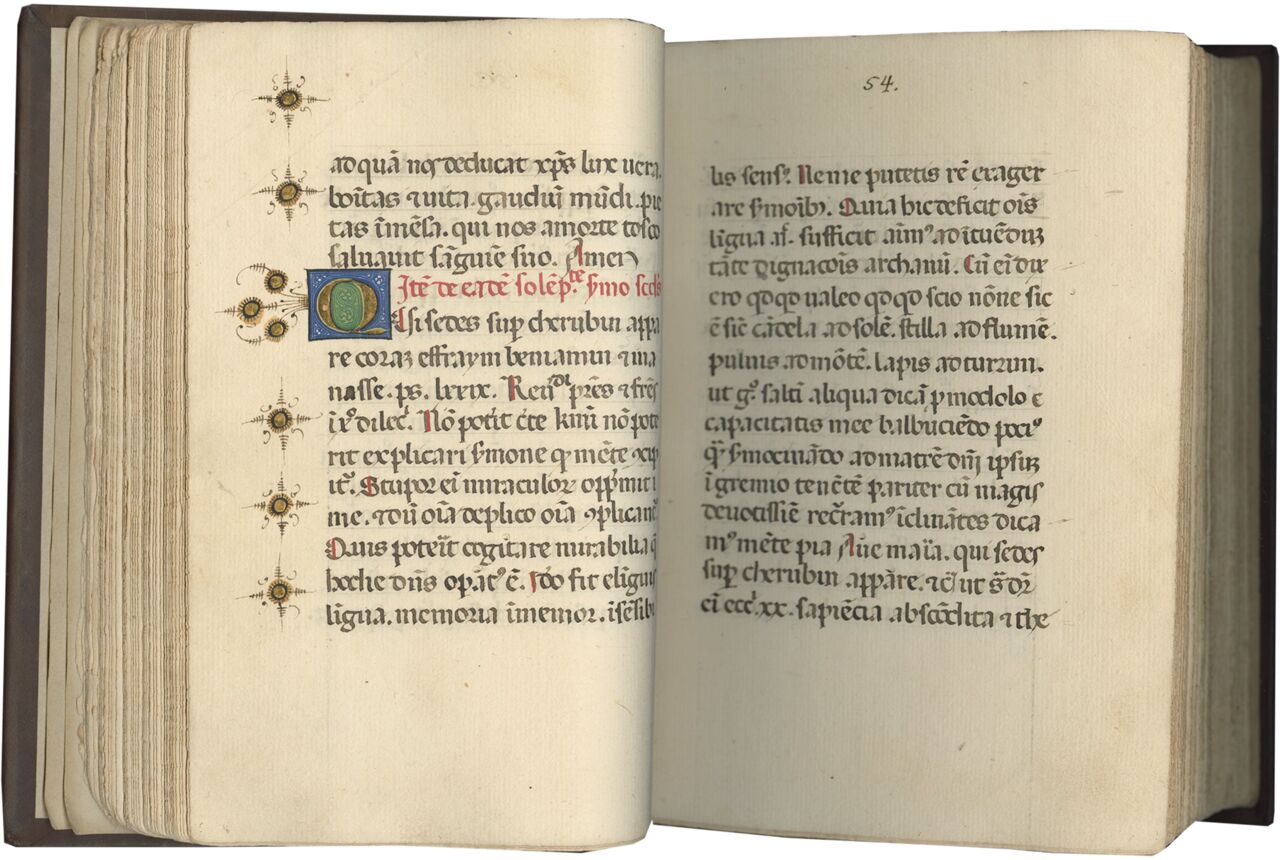 ad quā nos deducat xp̄s lux uera.
bōitas ⁊ uita. gaudiū mūdi. pie
tas īmēsa. qui nos amorte tosco
saluauit sāguiē suo. Amen
Itē de eadē solēp.te s̄mo scd's
Q
Qi sedes sup cherubin appa
re coraꝫ effraym beniamin ⁊ ma
nasse. ps. lxxix. Reu pr̄es ⁊ fr̄es
ī xº dilec. Nō potit
nō pote
rit explicari s̄mone q mēte
it. Stupor ei miraculoꝝ opp̄mit
me. ⁊ dū oīa deplico oīa ꝯplican
Quis poterit cogitare mirabilia q
hodie dn̄s opāt' ē. Ido fit elīguis
līgua. memoria īmemor. īsēsibi
54.
lis sens'. Ne me putetis rē exager
are s̄moībꝫ. Quia hic deficit oīs
līgua
sufficit
tāte dignacōis archanū. Cū eī dix
ero qdqd ualeo qdqd scio nōne sic
ē sic cādela ad solē. stilla ad flumē.
puluis ad mōtē. lapis ad turrim.
ut gº saltī aliqua dicā p modolo
capacitatis mee balbuciēdo poci'
q s̄mocinādo ad matrē dn̄i ipsuꝫ
ī gremio tenētē pariter cū magis
deuotissīe
īclinātes dica
m' mēte pia Aue maīa. qui sedes
sup cherubin appāre.
ut
eī ecc
xx. sapiēcia abscōdita ⁊ the